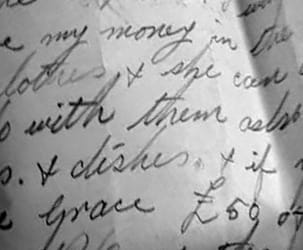 e my money in the
lothes, & she can
with them as
s. & dishes. & if
e Grace £50 of